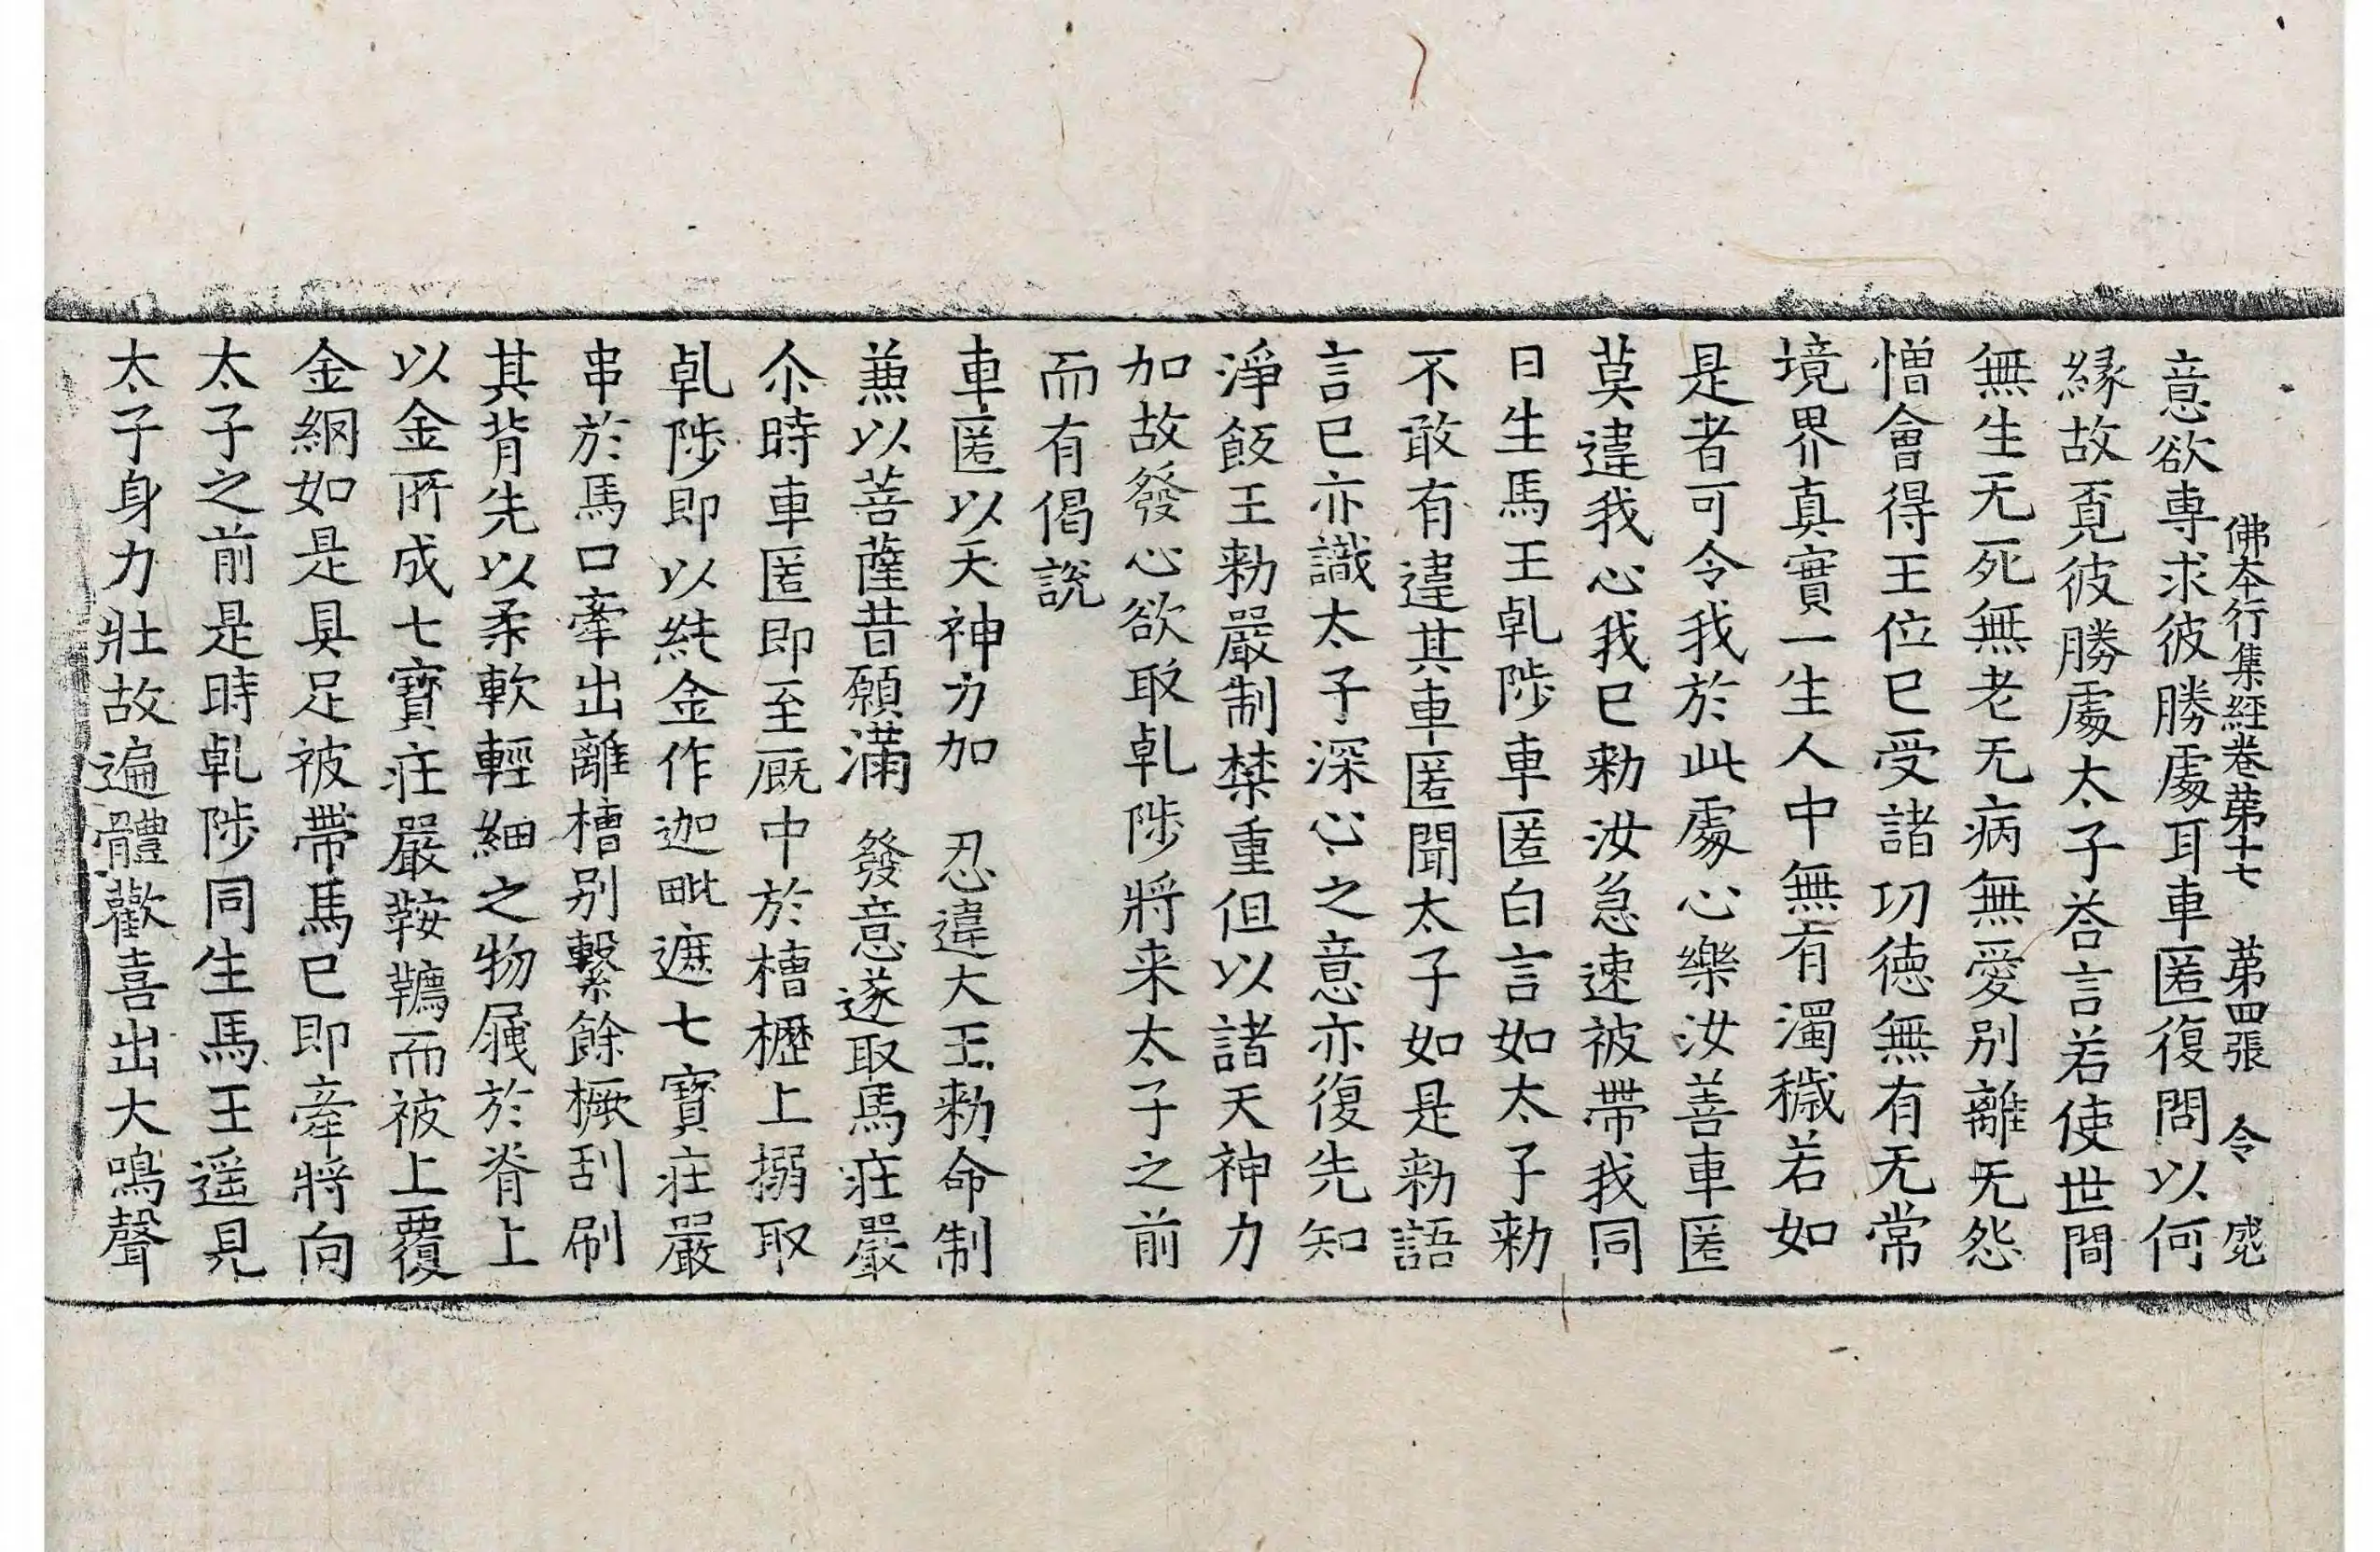 佛本行集經卷苐十七　苐四張　令
意欲専求彼勝處耳車匿復問以何
緣故覔彼勝處太子荅言若使世間
無生无死無老无病無愛别離无怨
憎會得王位已受諸㓛徳無有无常
境界真實一生人中無有濁穢若如
是者可令我於此處心樂汝善車匿
莫違我心我已勑汝急速被帶我同
日生馬王乹陟車匿白言如太子勑
不敢有違其車匿聞太子如是勑語
言已亦識太子深心之意亦復先知
淨飯王勑嚴制禁重但以諸天神力
加故發心欲取乹陟將来太子之前
而有偈說
車匿以天神力加　忍違大王勑命制
兼以菩薩昔願滿　發意遂取馬莊嚴
尒時車匿即至厩中於槽櫪上搦取
乹陟即以純金作迦毗遮七寶莊嚴
串於馬口牽出離槽别繫餘橛刮刷
其背先以柔軟輕細之物屧於脊上
以金所成七寶莊嚴鞍韉而被上覆
金網如是具足被帶馬已即牽將向
太子之前是時乹陟同生馬王遥見
太子身力壯故遍體歡喜出大鳴聲